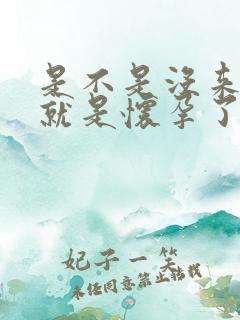 是不是没来
就是怀孕了
妃子一笑
未经同意禁止转载